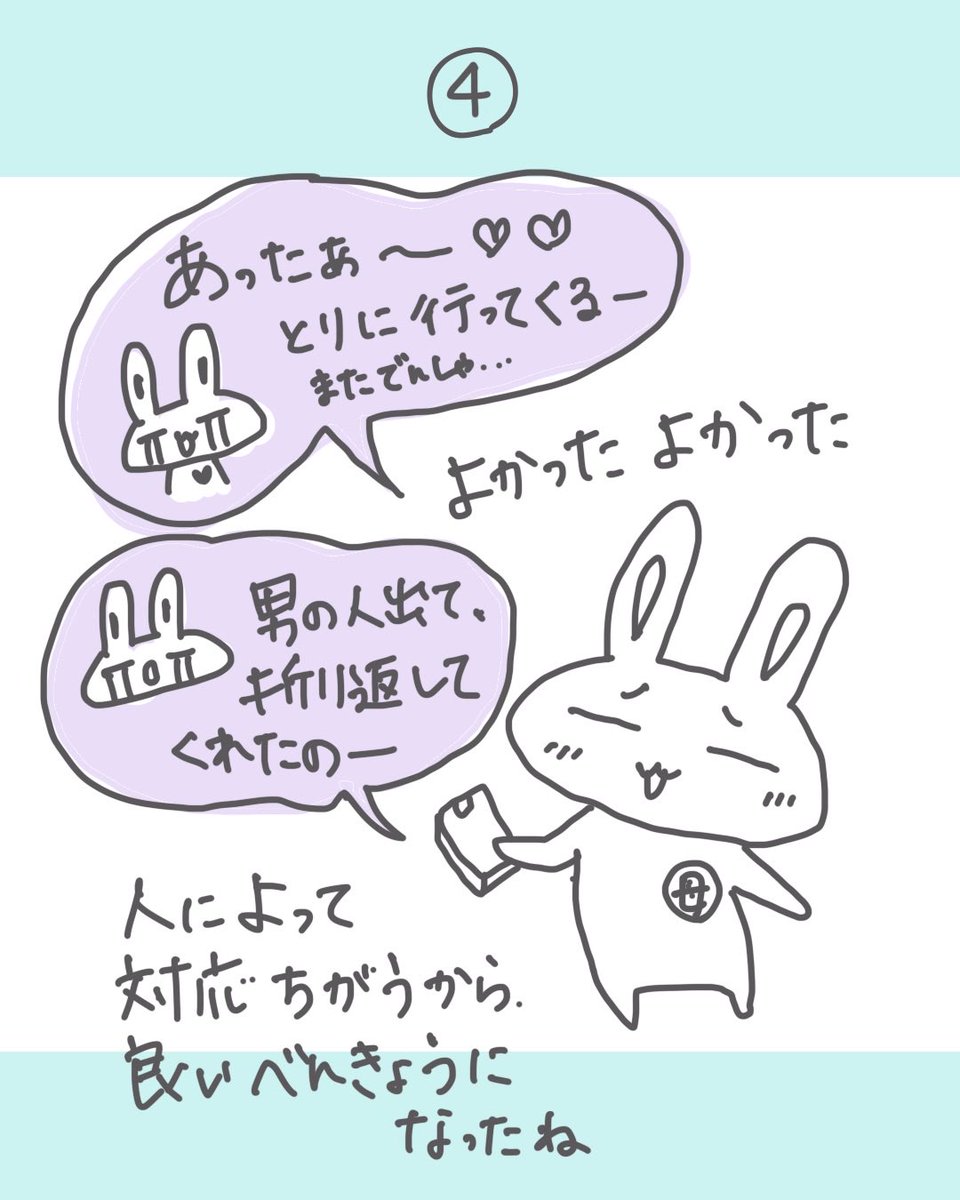 ④
あったぁ〜♡♡
とりに行ってくるー
またでんしゃ...
よかった よかった
男の人出て、
折り返して
くれたのー
母
人によって
対応ちがうから、
良いべんきょうに
なったね